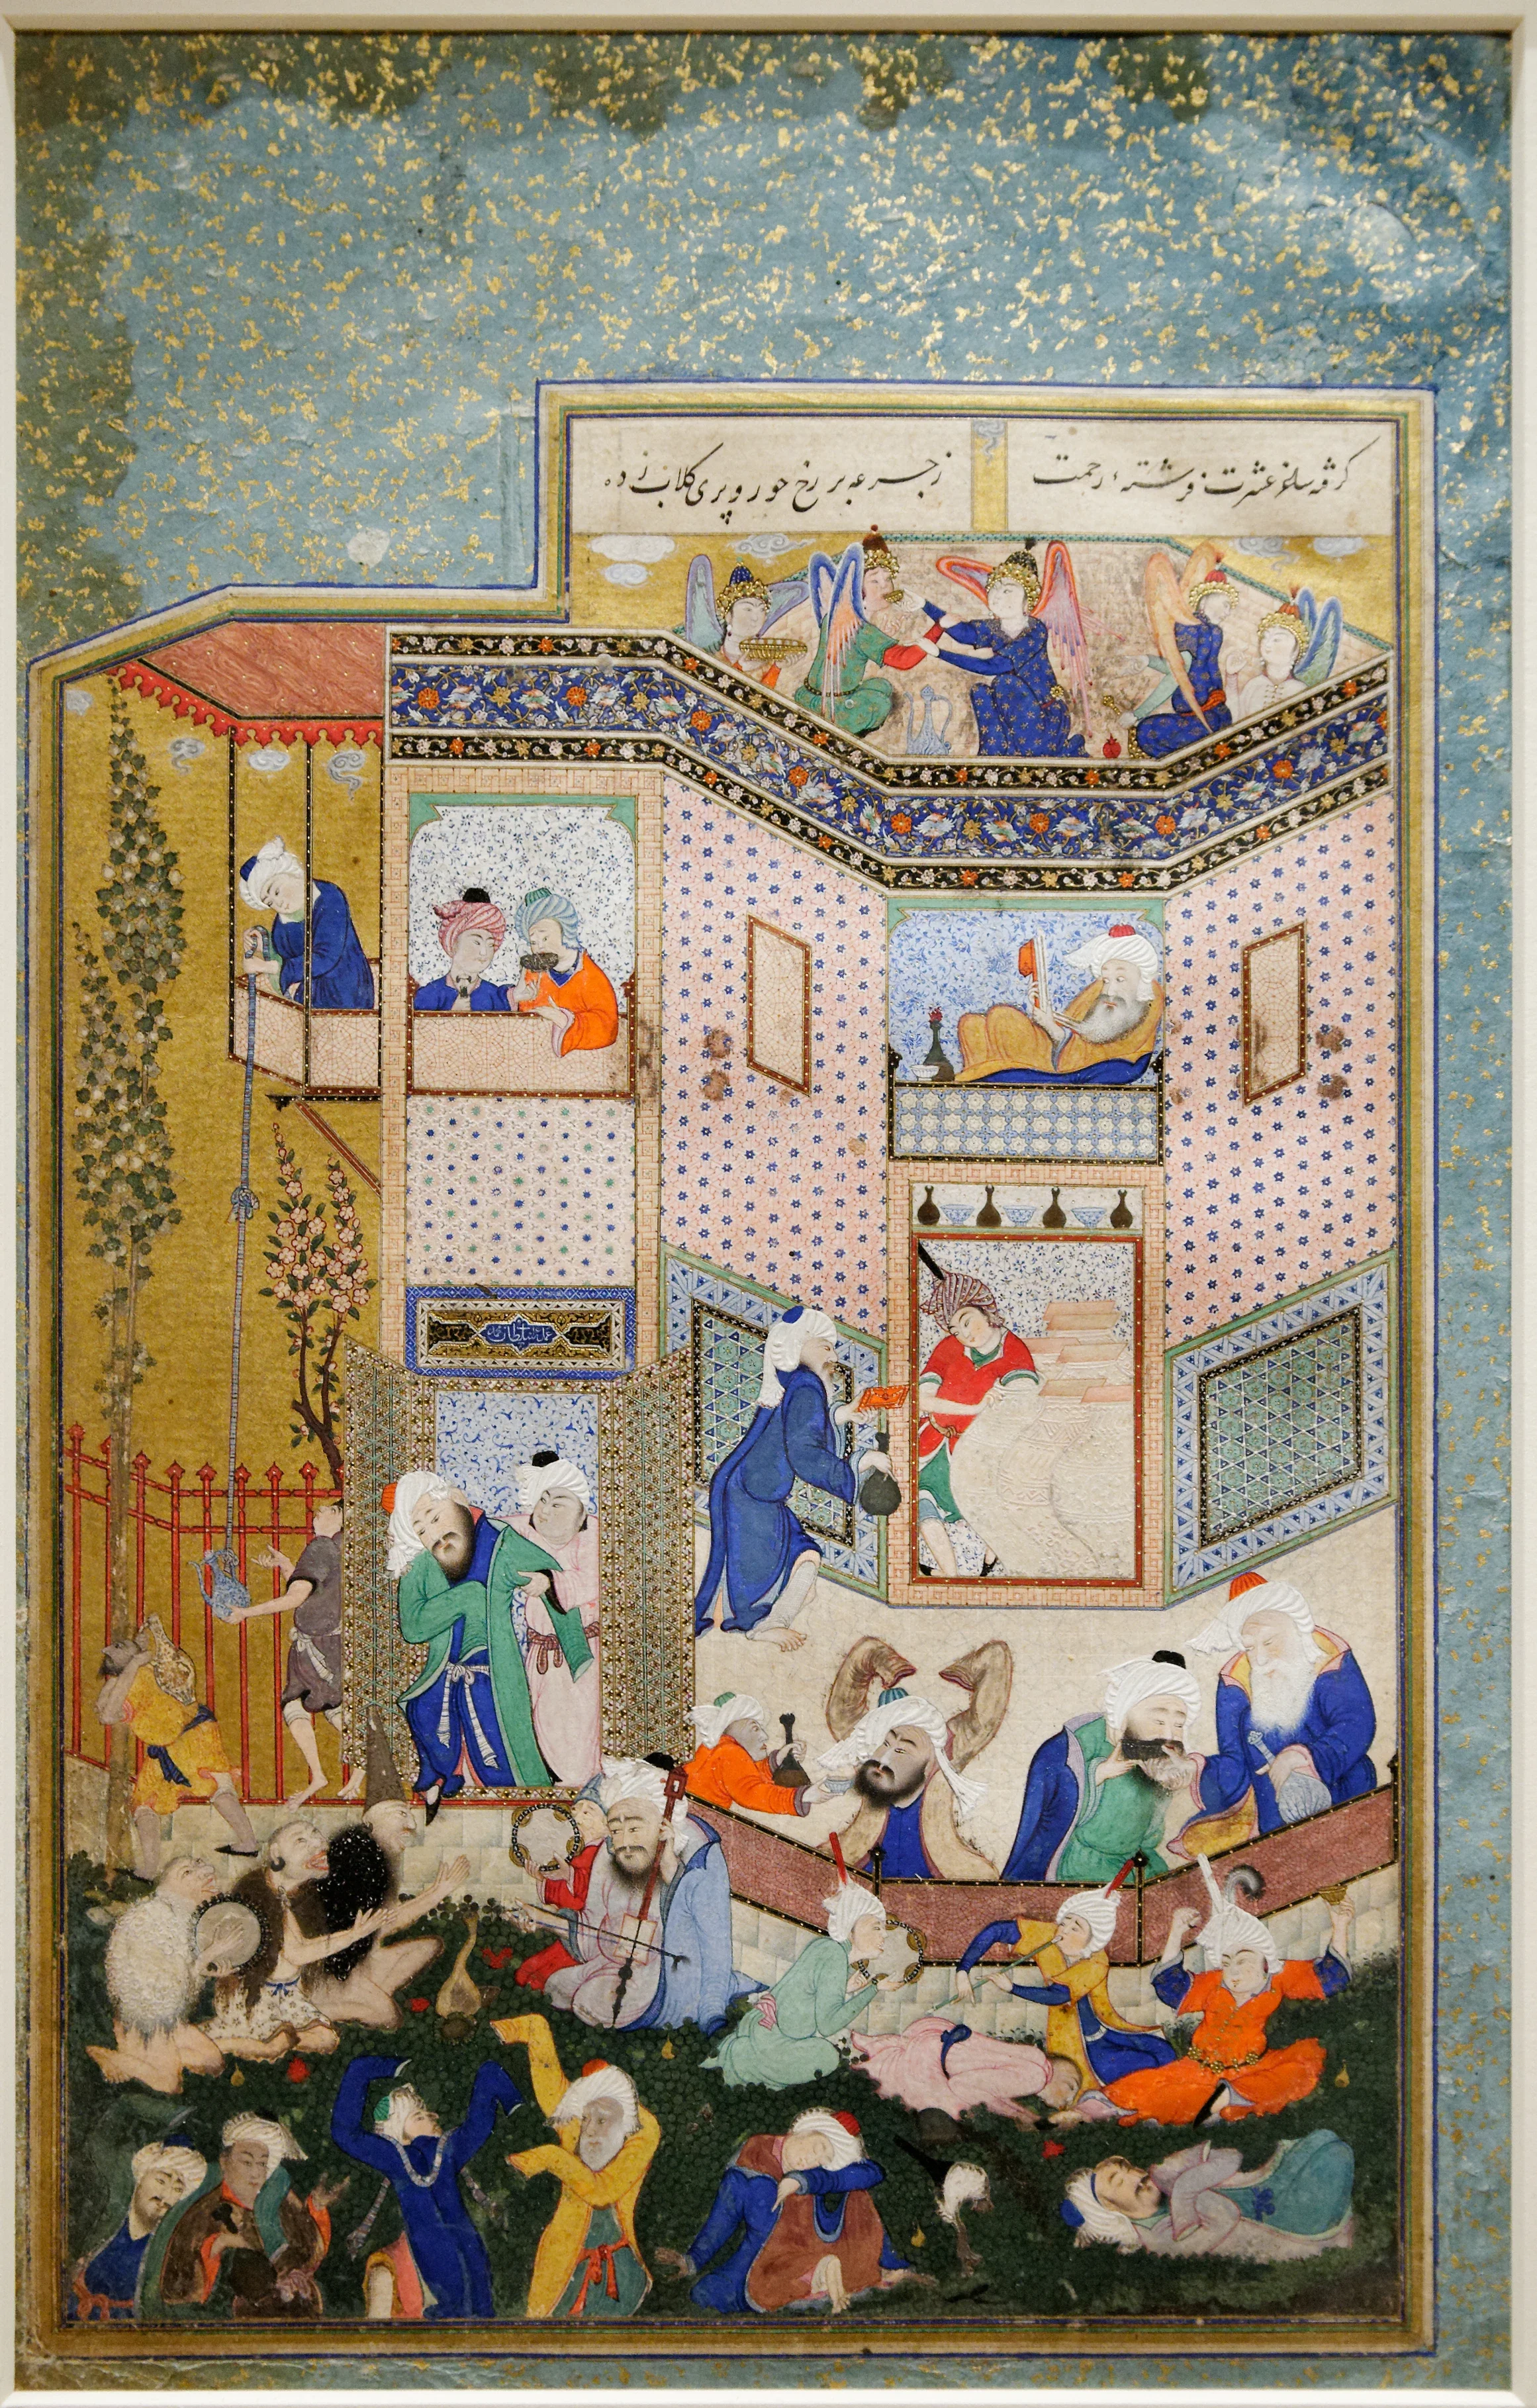 گرفته ساغر عشرت فرشتهٔ رحمت
ز جرعه بر رخ حور و پری گلاب زده